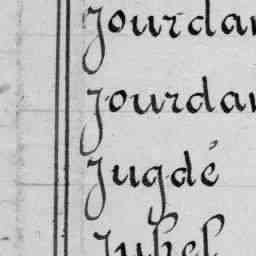 Jourdan
Jourdan
Jugdé
Juhel